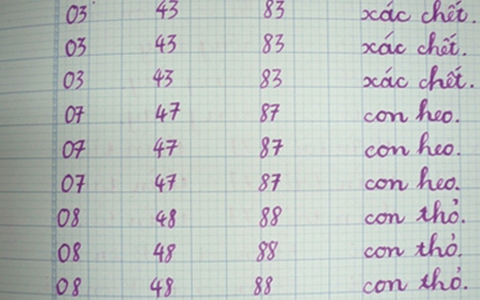 03 43 83 xác chết.
03 43 83 xác chết.
03 43 83 xác chết.
07 47 87 con heo.
07 47 87 con heo.
07 47 87 con heo.
08 48 88 con thỏ.
08 48 88 con thỏ.
08 48 88 con thỏ.